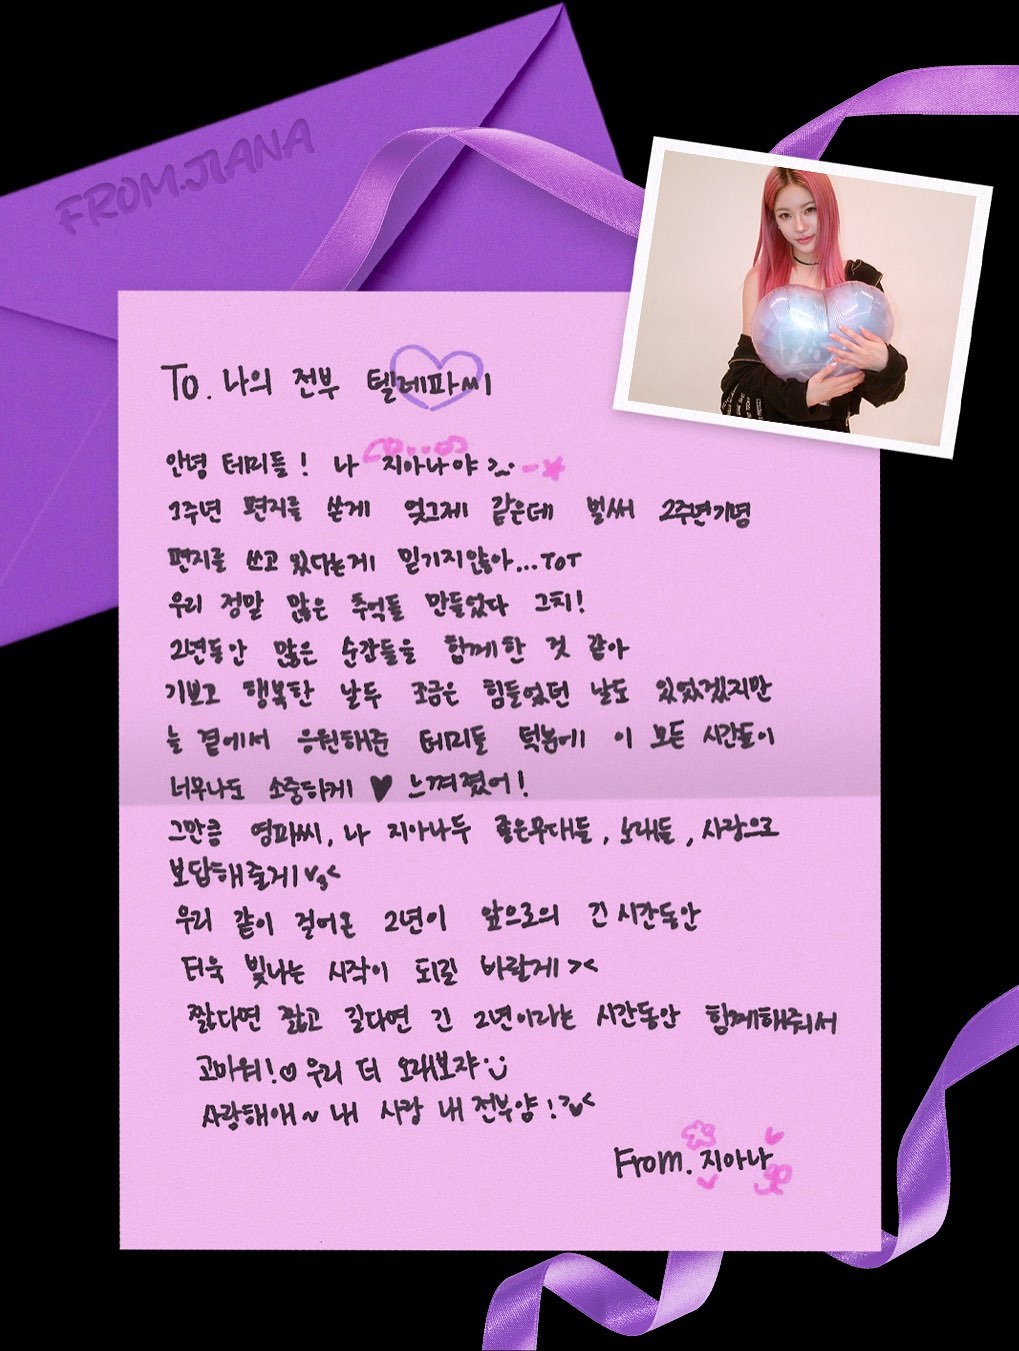 FROM.JIANA
To. 나의 전부 텔레파씨
안녕 테미들! 나 지아나야
1주년 편지를 쓴게 엊그제 같은데 벌써 2주년기념
편지를 쓰고 있다는게 믿기지않아...ToT
우리 정말 많은 추억들 만들었다 그치!
2년동안 많은 순간들을 함께한 것 같아
기쁘고 행복한 날두 조금은 힘들었던 날도 있었겠지만
늘 곁에서 응원해준 테미들 덕분에 이 모든 시간들이
너무나도 소중하게 ♥ 느껴졌어!
그만큼 영파씨, 나 지아나두 좋은무대들, 노래들, 사랑으로
보답해줄게!
우리 같이 걸어온 2년이 앞으로의 긴 시간동안
더욱 빛나는 시작이 되길 바랄게 ><
짧다면 짧고 길다면 긴 2년이라는 시간동안 함께해줘서
고마워!♡ 우리 더 오래보쟈 :)
사랑해애~ 내 사랑 내 전부얌!
From. 지아나